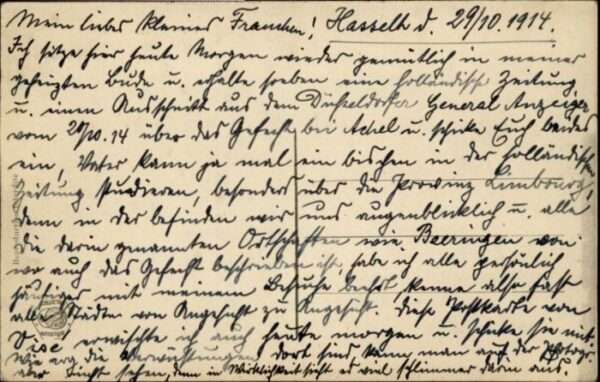 Mein liebes kleines Frauchen! Hasselt d. 29/10.1914.
Ich sitze hier heute Morgen wieder gemütlich in meiner
geheizten Bude u. erhalte soeben eine holländische Zeitung
u. einen Ausschnitt aus dem Düsseldorfer General Anzeiger
vom 20/10.14 über das Gefecht bei Achel u. schicke Euch beides
ein, Vater kann ja mal ein bischen in der holländischen
Zeitung studieren, besonders über die Provinz Limbourg,
denn in der befinden wir uns augenblicklich u. alle
die darin genannten Ortschaften wie Beeringen von
wo auch das Gefecht beschrieben ist, habe ich alle persönlich
häufiger mit meinem Besuche beehrt, kenne also fast
alle Städte von Angesicht zu Angesicht. Diese Postkarte von
Visé erwischte ich auch heute morgen u. schicke sie mit.
Wie arg die Verwüstungen dort sind, kann man auf der Photogr.
aber nicht sehen, denn in Wirklichkeit sieht es viel schlimmer darin aus.